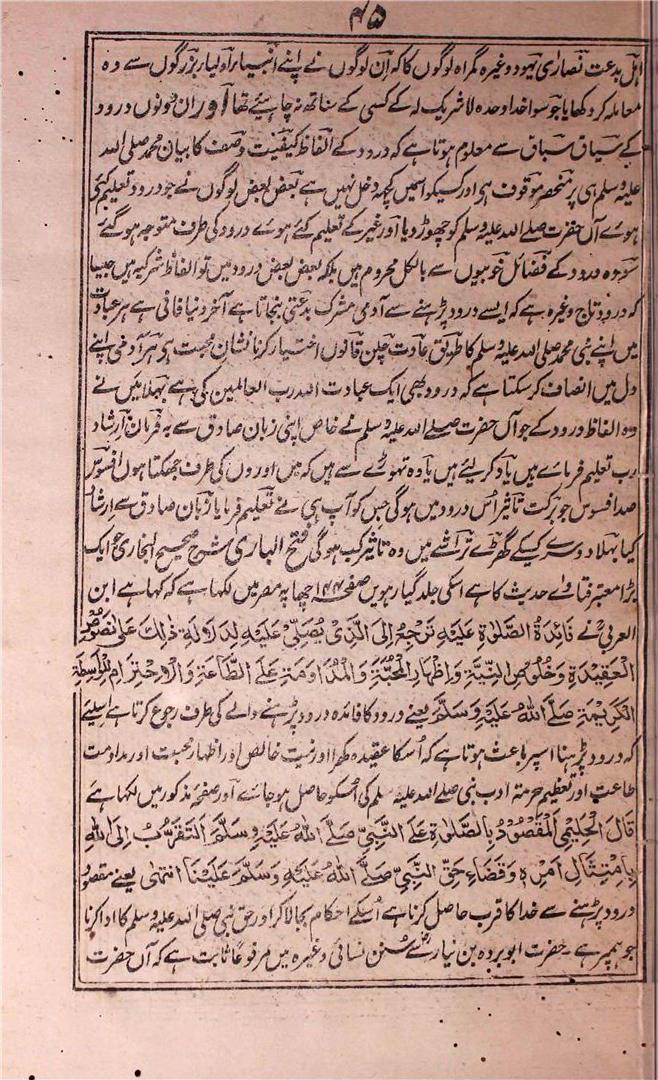 ۴۵
اہل بدعت نصارٰی یہود وغیرہ گمراہ لوگوں کا کہ ان لوگوں نے اپنے انبیاء اولیاء بزرگوں سے وہ
معاملہ کر دکھایا جو سوا خدا وحدہ لا شریک لہ کے کسی کے ساتھ نہ چاہئے تھا اور ان دونوں درود
کے سیاق سباق سے معلوم ہوتا ہے کہ درود کے الفاظ کیفیت وصف کا بیان محمد صلی اللہ
علیہ وسلم ہی پر منحصر موقوف ہی اور کسیکو اسمیں کچہہ دخل نہیں ہے بعض بعض لوگوں نے جو درود تعلیم کی
ہوے آں حضرت صلے اللہ علیہ وسلم کو چھوڑ دیا اور غیر کے تعلیم کئے ہوے درود کی طرف متوجہ ہو گئے
سو وہ درود کے فضائل خوبیوں سے بالکل محروم ہیں بلکہ بعض بعض درود میں تو الفاظ شرکیہ ہیں جیسا
کہ درود تاج وغیرہ ہے کہ ایسے درود پڑہنے سے آدمی مشرک بدعتی بنجاتا ہے آخر دنیا فانی ہے ہر عبادت
میں اپنے نبی محمد صلی اللہ علیہ وسلم کا طریق عادت چلن قانون اختیار کرنا نشان محبت ہی ہر آدمی اپنے
دل میں انصاف کر سکتا ہے کہ درود بھی ایک عبادت اللہ رب العالمین کی ہے پہلا میں نے
وہ الفاظ درود کے جو آں حضرت صلے اللہ علیہ وسلم نے خاص اپنی زبان صادق سے بہ فرمان ارشاد
رب تعلیم فرماے ہیں یاد کر لیئے ہیں یا وہ تہوڑے سے ہیں کہ میں اوروں کی طرف جھکتا ہوں افسوس
صد افسوس جو برکت تاثیر اُس درود میں ہوگی جس کو آپ ہی نے تعلیم فرمایا زبان صادق سے ارشاد
کیا بہلا دوسرے کسیکے گھڑے تراشے میں وہ تاثیر کب ہوگی فتح الباری شرح صحیح البخاری جو ایک
بڑا معتبر فتاوے حدیث کا ہے اسکی جلد گیارہویں صفحہ ۱۴۴ چھاپہ مصر میں لکہا ہے کہ کہا ہے ابن
العربی نے فَائِدَةُ الصَّلٰوةِ عَلَيْهِ تَرْجِعُ اِلَى الَّذِيْ يُصَلِّيْ عَلَيْهِ لِدَلَالَةِ ذٰلِكَ عَلٰى نُصُوْصِ
الْعَقِيْدَةِ وَخُلُوْصِ النِّيَّةِ وَاِظْهَارِ الْمَحَبَّةِ وَالْمُدَاوَمَةِ عَلَے الطَّاعَةِ وَالْاِحْتِرَامِ لِلْوَاسِطَةِ
الْكَرِيْمَةِ صَلَّے اللهُ عَلَيْهِ وَسَلَّمَ یعنے درود کا فائدہ درود پڑہنے والے کی طرف رجوع کرتا ہے اسلیے
کہ درود پڑہنا اسپر باعث ہوتا ہے کہ اُسکا عقیدہ کھرا اور نیت خالص اور اظہار محبت اور مداومت
طاعت اور تعظیم حرمۃ ادب نبی صلے اللہ علیہ سلم کی اُسکو حاصل ہو جاے اور صفحہ مذکور میں لکہا ہے
قَالَ الْحَلِيْمِيُّ اَلْمَقْصُوْدُ بِالصَّلٰوةِ عَلَے النَّبِيِّ صَلَّے اللهُ عَلَيْهِ وَسَلَّمَ اَلتَّقَرُّبُ اِلَى اللهِ
بِامْتِثَالِ اَمْرِهٖ وَقَضَاءِ حَقِّ النَّبِيِّ صَلَّے اللهُ عَلَيْهِ وَسَلَّمَ عَلَيْنَا انتہٰی یعنے مقصود
درود پڑہنے سے خدا کا قرب حاصل کرنا ہے اُسکے احکام بجا لا کر اور حق نبی صلی اللہ علیہ وسلم کا ادا کرنا
جو ہمپر ہے - حضرت ابو بردہ بن نیار سے سنن نسائی وغیرہ میں مرفوعاً ثابت ہے کہ آں حضرت